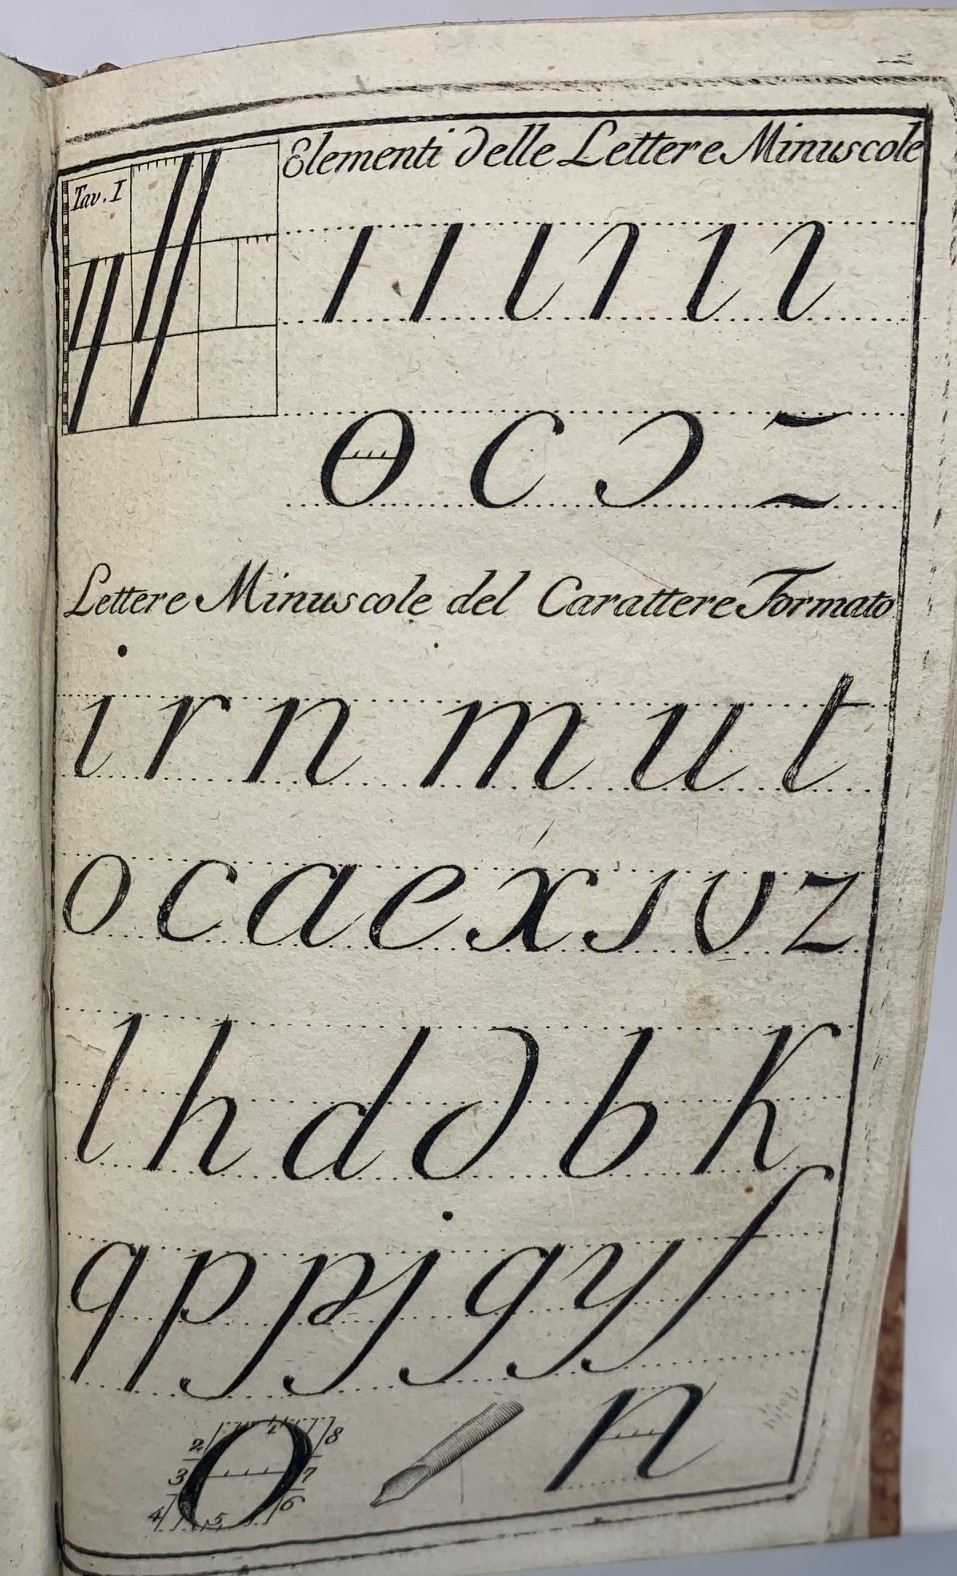 Tav. I
Elementi delle Lettere Minuscole
Lettere Minuscole del Carattere Formato
i r n m u t
o c a e x s v z
l h d ∂ b k
q p p j g y f
1 2 3 4 5 6 7 8
O n